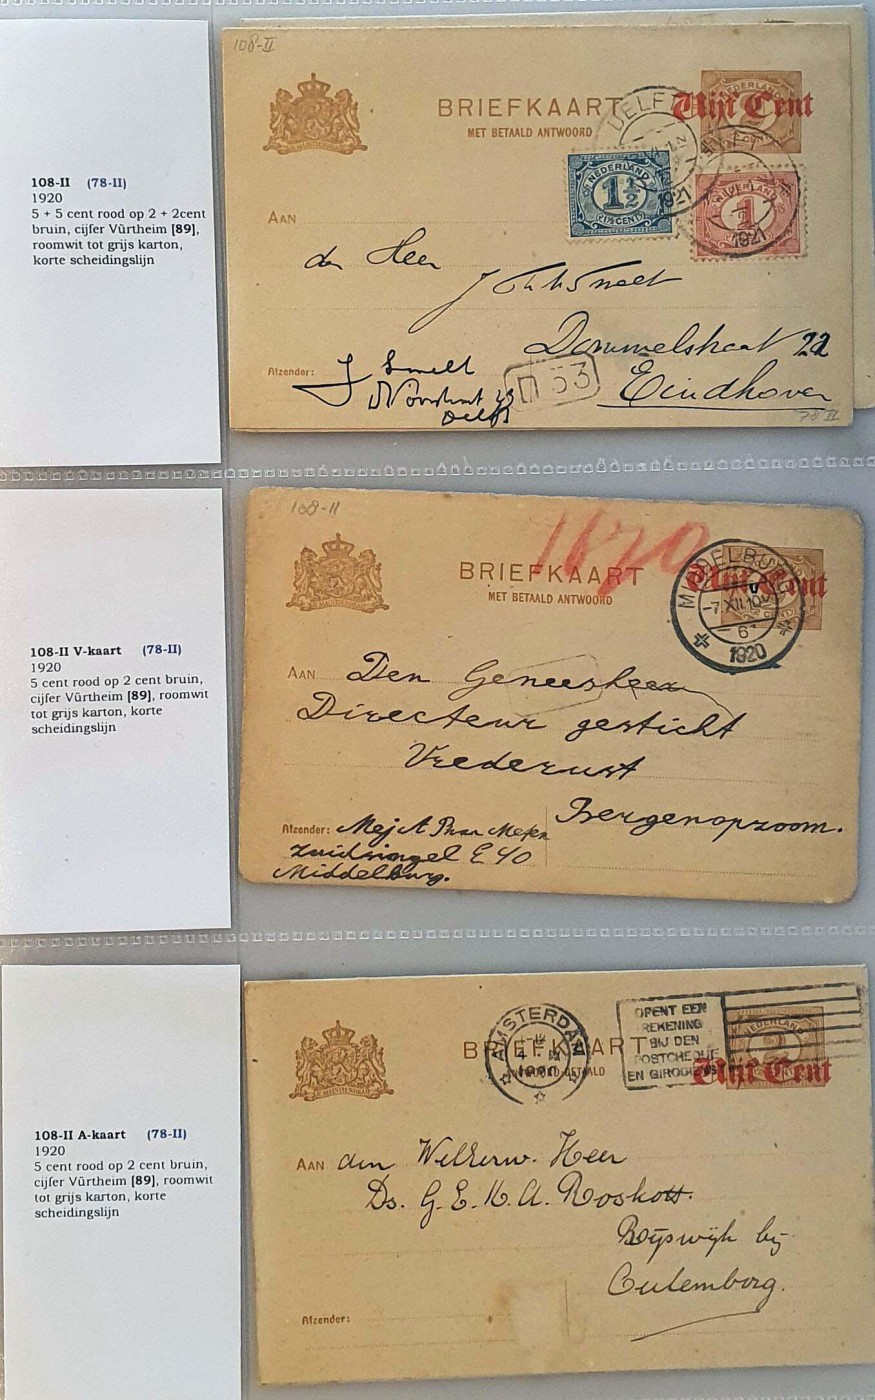 108-II (78-II)
1920
5 + 5 cent rood op 2 + 2cent
bruin, cijfer Vürtheim [89],
roomwit tot grijs karton,
korte scheidingslijn
108-II
BRIEFKAART
MET BETAALD ANTWOORD
NEDERLAND
Vijf Cent
DELFT
1921
1921
NEDERLAND
1½
(1½CENT)
NEDERLAND
1
AAN
den Heer
Dommelstraat 22
Eindhoven
Afzender:
J Smelt
Delft
53
78 II
108-II V-kaart (78-II)
1920
5 cent rood op 2 cent bruin,
cijfer Vürtheim [89], roomwit
tot grijs karton, korte
scheidingslijn
108-II
1620
BRIEFKAART
MET BETAALD ANTWOORD
Vijf Cent
MIDDELBURG
-7.XII.10V
6
1920
AAN
Den Geneesheer
Directeur gesticht
Vrederust
Bergenopzoom.
Afzender:
Zuidsingel E 40
Middelburg.
108-II A-kaart (78-II)
1920
5 cent rood op 2 cent bruin,
cijfer Vürtheim [89], roomwit
tot grijs karton, korte
scheidingslijn
BRIEFKAART
AMSTERDAM
OPENT EEN
REKENING
BIJ DEN
POSTCHEQUE
EN GIRODIENST
NEDERLAND
2
Vijf Cent
AAN
den WelEerw. Heer
Ds. G. E. K. A. Roskott.
Rijswijk bij
Culemborg.
Afzender: